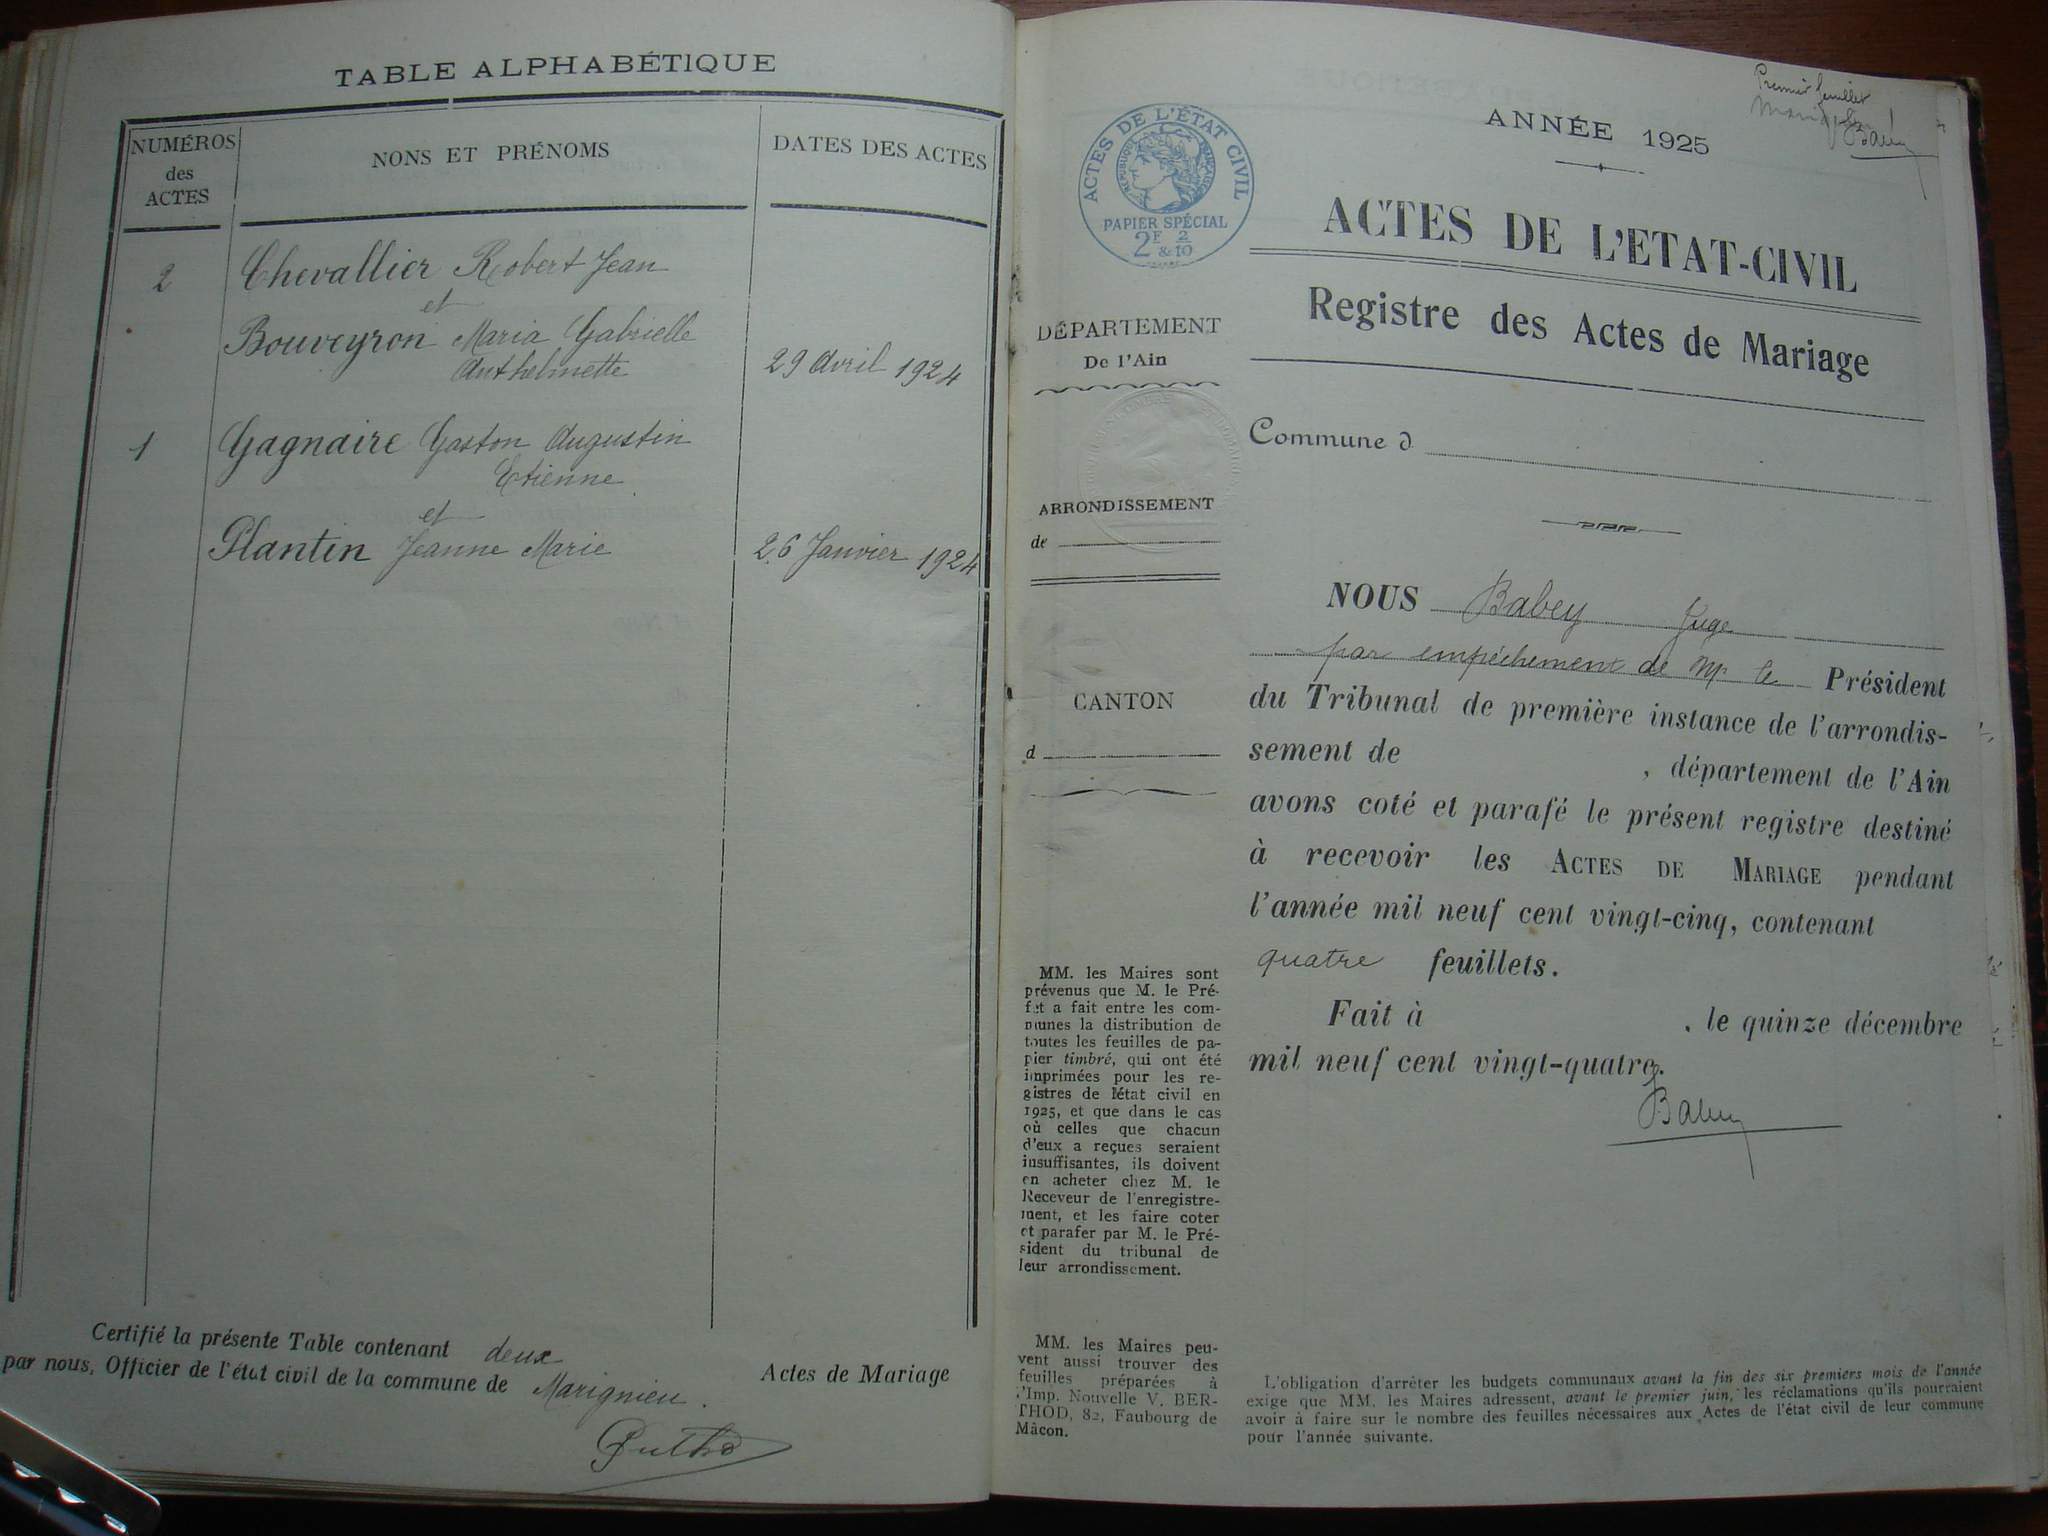 TABLE ALPHABÉTIQUE
NUMÉROS
des
ACTES
NONS ET PRÉNOMS
DATES DES ACTES
2
Chevallier Robert Jean
et
Bouveyron Maria Gabrielle
Anthelmette
29 Avril 1924
1
Gagnaire Gaston Augustin
Etienne
et
Plantin Jeanne Marie
26 Janvier 1924
Certifié la présente Table contenant deux
Actes de Mariage
par nous, Officier de l'état civil de la commune de Marignieu.
Premier feuillet
ANNÉE 1925
ACTES DE L'ÉTAT CIVIL
RÉPUBLIQUE FRANÇAISE
PAPIER SPÉCIAL
2F & 2/10
ACTES DE L'ETAT-CIVIL
Registre des Actes de Mariage
DÉPARTEMENT
De l'Ain
Commune d
ARRONDISSEMENT
de
CANTON
d
NOUS Babey Juge
par empêchement de Mr le Président
du Tribunal de première instance de l'arrondis-
sement de , département de l'Ain
avons coté et parafé le présent registre destiné
à recevoir les ACTES DE MARIAGE pendant
l'année mil neuf cent vingt-cinq, contenant
quatre feuillets.
Fait à , le quinze décembre
mil neuf cent vingt-quatre.
Babey
MM. les Maires sont
prévenus que M. le Pré-
fet a fait entre les com-
munes la distribution de
toutes les feuilles de pa-
pier timbré, qui ont été
imprimées pour les re-
gistres de l'état civil en
1925, et que dans le cas
où celles que chacun
d'eux a reçues seraient
insuffisantes, ils doivent
en acheter chez M. le
Receveur de l'enregistre-
ment, et les faire coter
et parafer par M. le Pré-
sident du tribunal de
leur arrondissement.
MM. les Maires peu-
vent aussi trouver des
feuilles préparées à
l'Imp. Nouvelle V. BER-
THOD, 82, Faubourg de
Mâcon.
L'obligation d'arrêter les budgets communaux avant la fin des six premiers mois de l'année
exige que MM. les Maires adressent, avant le premier juin, les réclamations qu'ils pourraient
avoir à faire sur le nombre des feuilles nécessaires aux Actes de l'état civil de leur commune
pour l'année suivante.